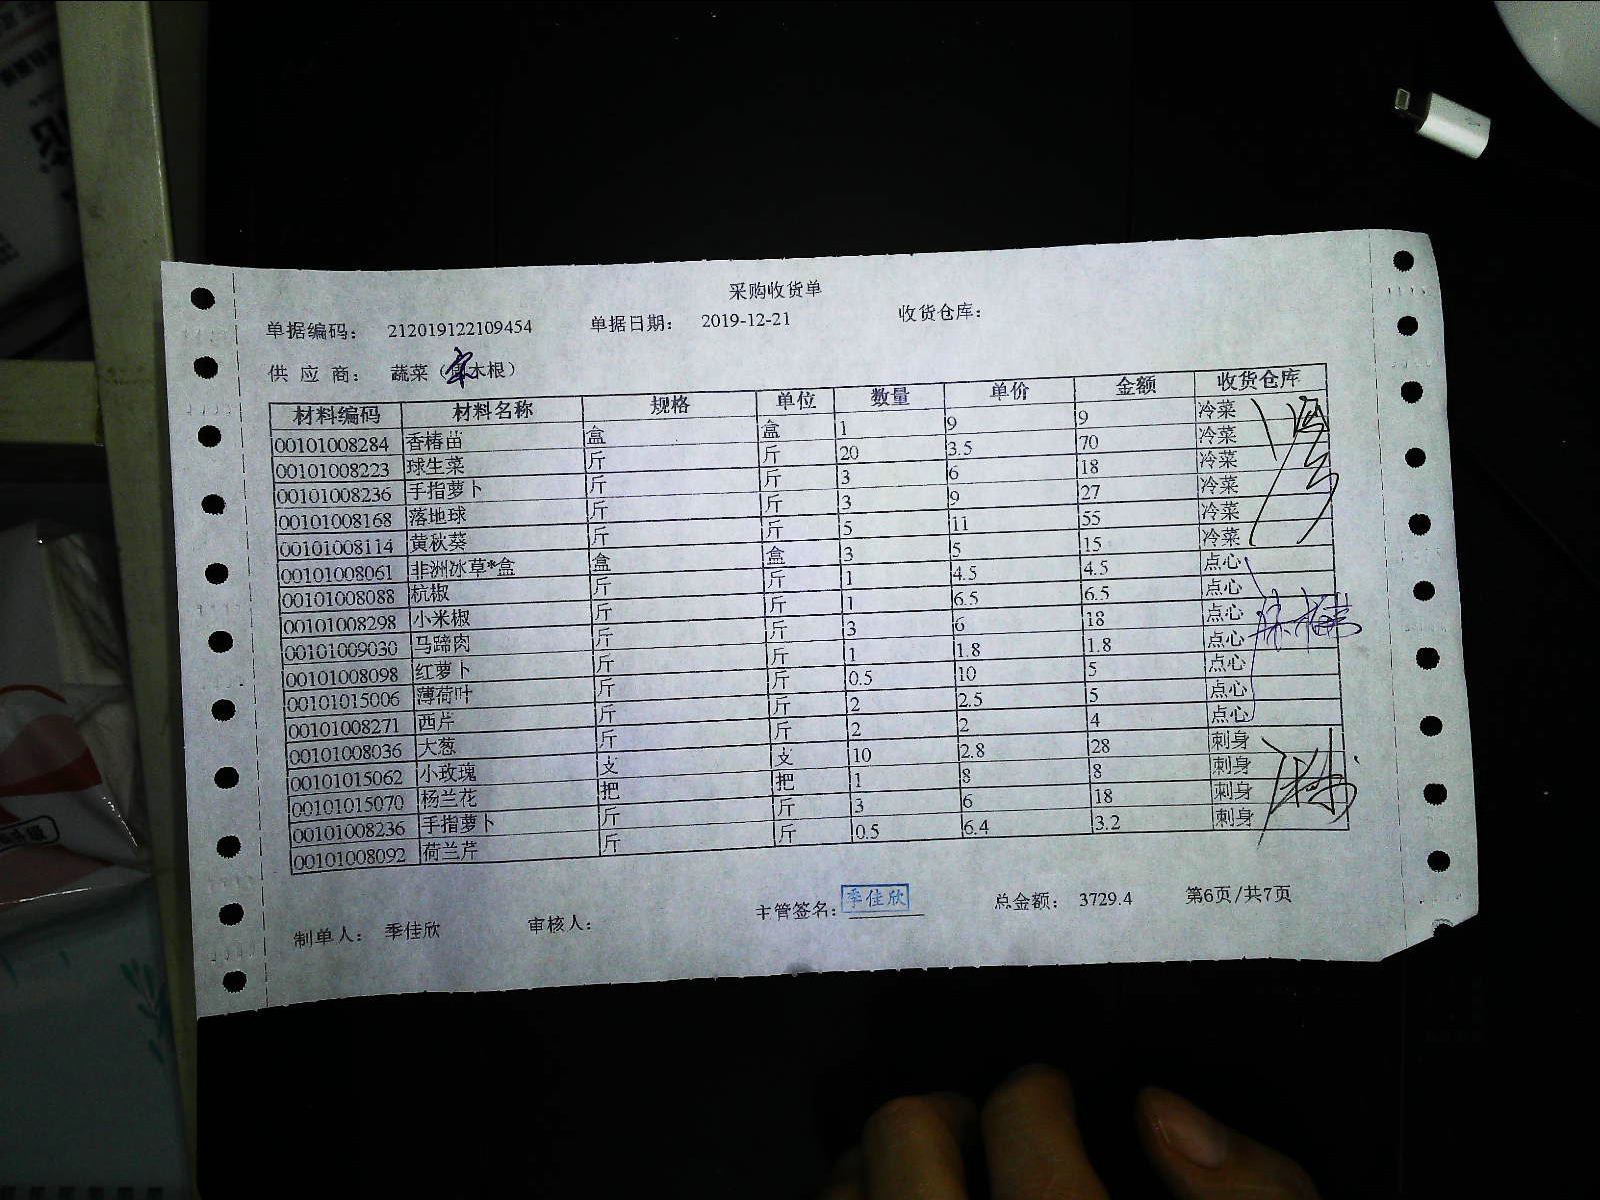 采购收货单
单据编码： 212019122109454 单据日期： 2019-12-21 收货仓库：
供应商： 蔬菜（宋木根）
材料编码 材料名称 规格 单位 数量 单价 金额 收货仓库
00101008284 香椿苗 盒 盒 1 9 9 冷菜
00101008223 球生菜 斤 斤 20 3.5 70 冷菜
00101008236 手指萝卜 斤 斤 3 6 18 冷菜
00101008168 落地球 斤 斤 3 9 27 冷菜
00101008114 黄秋葵 斤 斤 5 11 55 冷菜
00101008061 非洲冰草*盒 盒 盒 3 5 15 冷菜
00101008088 杭椒 斤 斤 1 4.5 4.5 点心
00101008298 小米椒 斤 斤 1 6.5 6.5 点心
00101009030 马蹄肉 斤 斤 3 6 18 点心
00101008098 红萝卜 斤 斤 1 1.8 1.8 点心
00101015006 薄荷叶 斤 斤 0.5 10 5 点心
00101008271 西芹 斤 斤 2 2.5 5 点心
00101008036 大葱 斤 斤 2 2 4 点心
00101015062 小玫瑰 支 支 10 2.8 28 刺身
00101015070 杨兰花 把 把 1 8 8 刺身
00101008236 手指萝卜 斤 斤 3 6 18 刺身
00101008092 荷兰芹 斤 斤 0.5 6.4 3.2 刺身
制单人： 季佳欣 审核人： 主管签名： 季佳欣 总金额： 3729.4 第6页/共7页